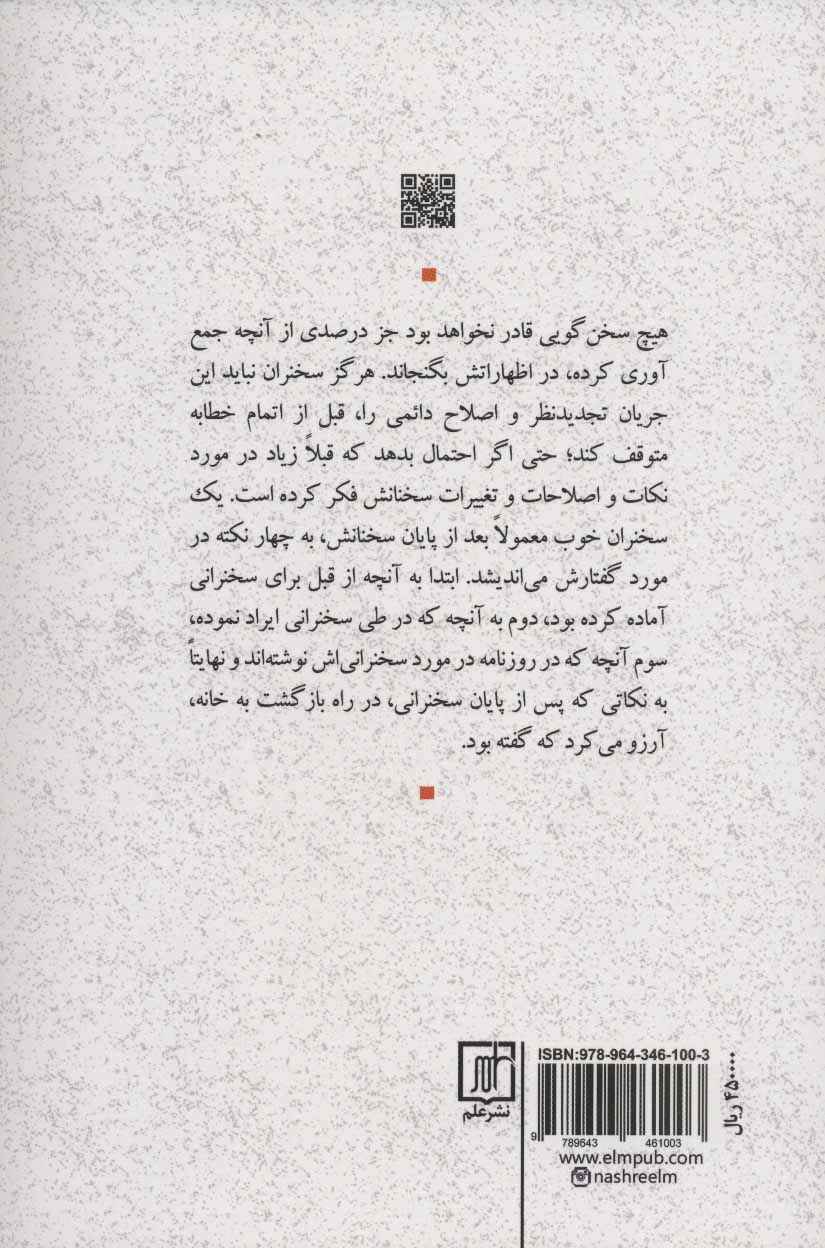 هیچ سخن‌گویی قادر نخواهد بود جز درصدی از آنچه جمع
آوری کرده، در اظهاراتش بگنجاند. هرگز سخنران نباید این
جریان تجدیدنظر و اصلاح دائمی را، قبل از اتمام خطابه
متوقف کند؛ حتی اگر احتمال بدهد که قبلاً زیاد در مورد
نکات و اصلاحات و تغییرات سخنانش فکر کرده است. یک
سخنران خوب معمولاً بعد از پایان سخنانش، به چهار نکته در
مورد گفتارش می‌اندیشد. ابتدا به آنچه از قبل برای سخنرانی
آماده کرده بود، دوم به آنچه که در طی سخنرانی ایراد نموده،
سوم آنچه که در روزنامه در مورد سخنرانی‌اش نوشته‌اند و نهایتاً
به نکاتی که پس از پایان سخنرانی، در راه بازگشت به خانه،
آرزو می‌کرد که گفته بود.
نشر علم
ISBN:978-964-346-100-3
9 789643 461003
www.elmpub.com
nashreelm
۴۵۰۰۰۰ ریال